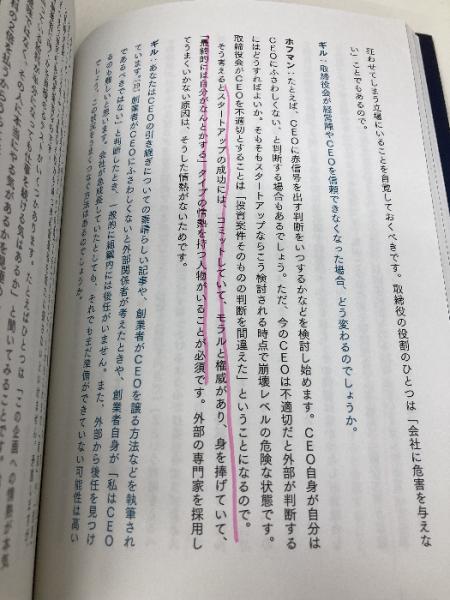 狂わせてしまう立場にいることを自覚しておくべきです。取締役の役割のひとつは「会社に危害を与えな
い」ことでもあるので。
ギル:取締役会が経営陣やCEOを信頼できなくなった場合、どう変わるのでしょうか。
ホフマン:たとえば、CEOに赤信号を出す判断をいつするかなどを検討し始めます。CEO自身が自分は
CEOにふさわしくない、と判断する場合もあるでしょう。ただ、今のCEOは不適切だと外部が判断する
にはどうすればよいか。そもそもスタートアップならこう検討される時点で崩壊レベルの危険な状態です。
取締役会がCEOを不適切とすることは「投資案件そのものの判断を間違えた」ということになるので。
そう考えるとスタートアップの成功には、コミットしていて、モラルと権威があり、身を捧げていて、
「最終的には自分がなんとかする」タイプの情熱を持つ人物がいることが必須です。外部の専門家を採用し
てうまくいかない原因は、そうした情熱がないためです。
ギル:あなたはCEOの引き継ぎについての素晴らしい記事や、創業者がCEOを譲る方法などを執筆され
ています。創業者がCEOにふさわしくないと外部関係者が考えたときや、創業者自身が「私はCEO
であるべきではない」と判断したとき、一般的に組織内には後任がいません。また、外部から後任を見つけ
るのも難しいと思います。会社が急成長していたとしても、それでもまだ準備ができていない可能性は高い
でしょう。この状況をうまくつなぐ方法はあるのでしょうか。
たとえばひとつは「この企画への情熱が本気